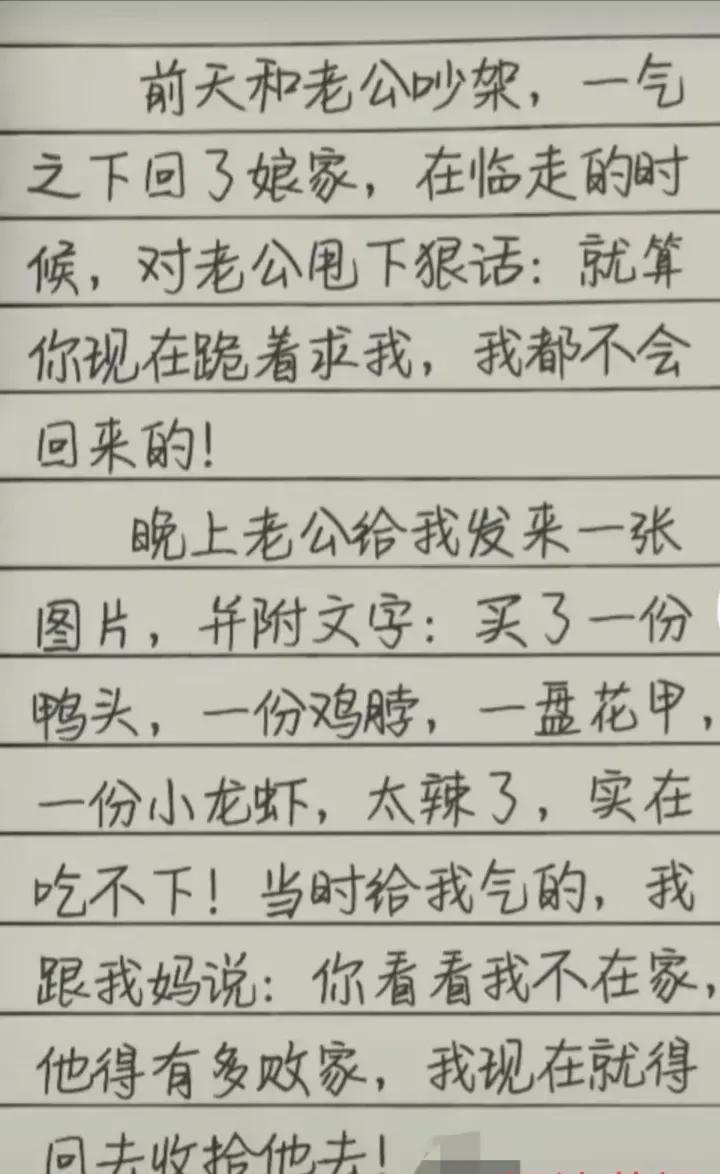 前天和老公吵架，一气
之下回了娘家，在临走的时
候，对老公甩下狠话：就算
你现在跪着求我，我都不会
回来的！
晚上老公给我发来一张
图片，并附文字：买了一份
鸭头，一份鸡脖，一盘花甲，
一份小龙虾，太辣了，实在
吃不下！当时给我气的，我
跟我妈说：你看看我不在家，
他得有多败家，我现在就得
回去收拾他去！